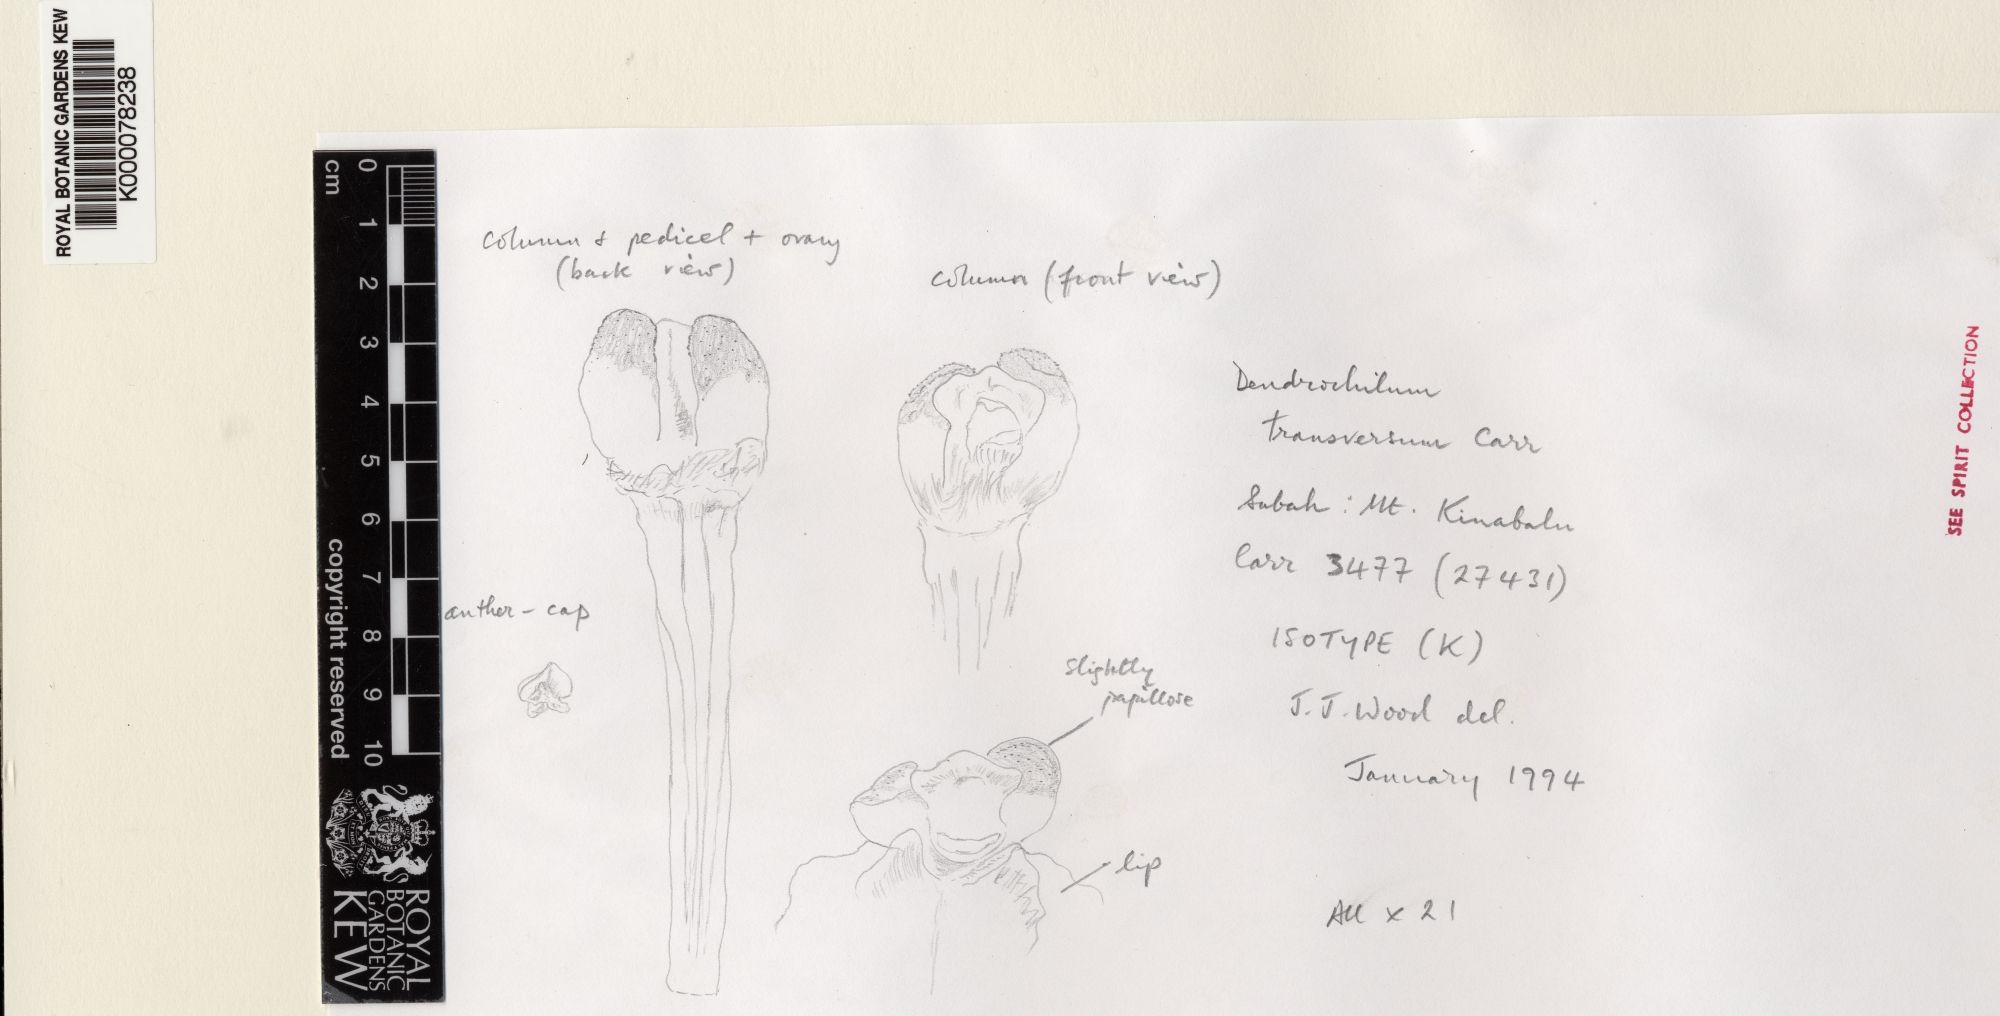 ROYAL BOTANIC GARDENS KEW
K000078238
cm
0 1 2 3 4 5 6 7 8 9 10
copyright reserved
ROYAL
BOTANIC
GARDENS
KEW
column & pedicel + ovary
(back view)
column (front view)
anther-cap
slightly
papillose
lip
Dendrochilum
transversum Carr
Sabah: Mt. Kinabalu
Carr 3477 (27431)
ISOTYPE (K)
J.J. Wood del.
January 1994
All x 21
SEE SPIRIT COLLECTION